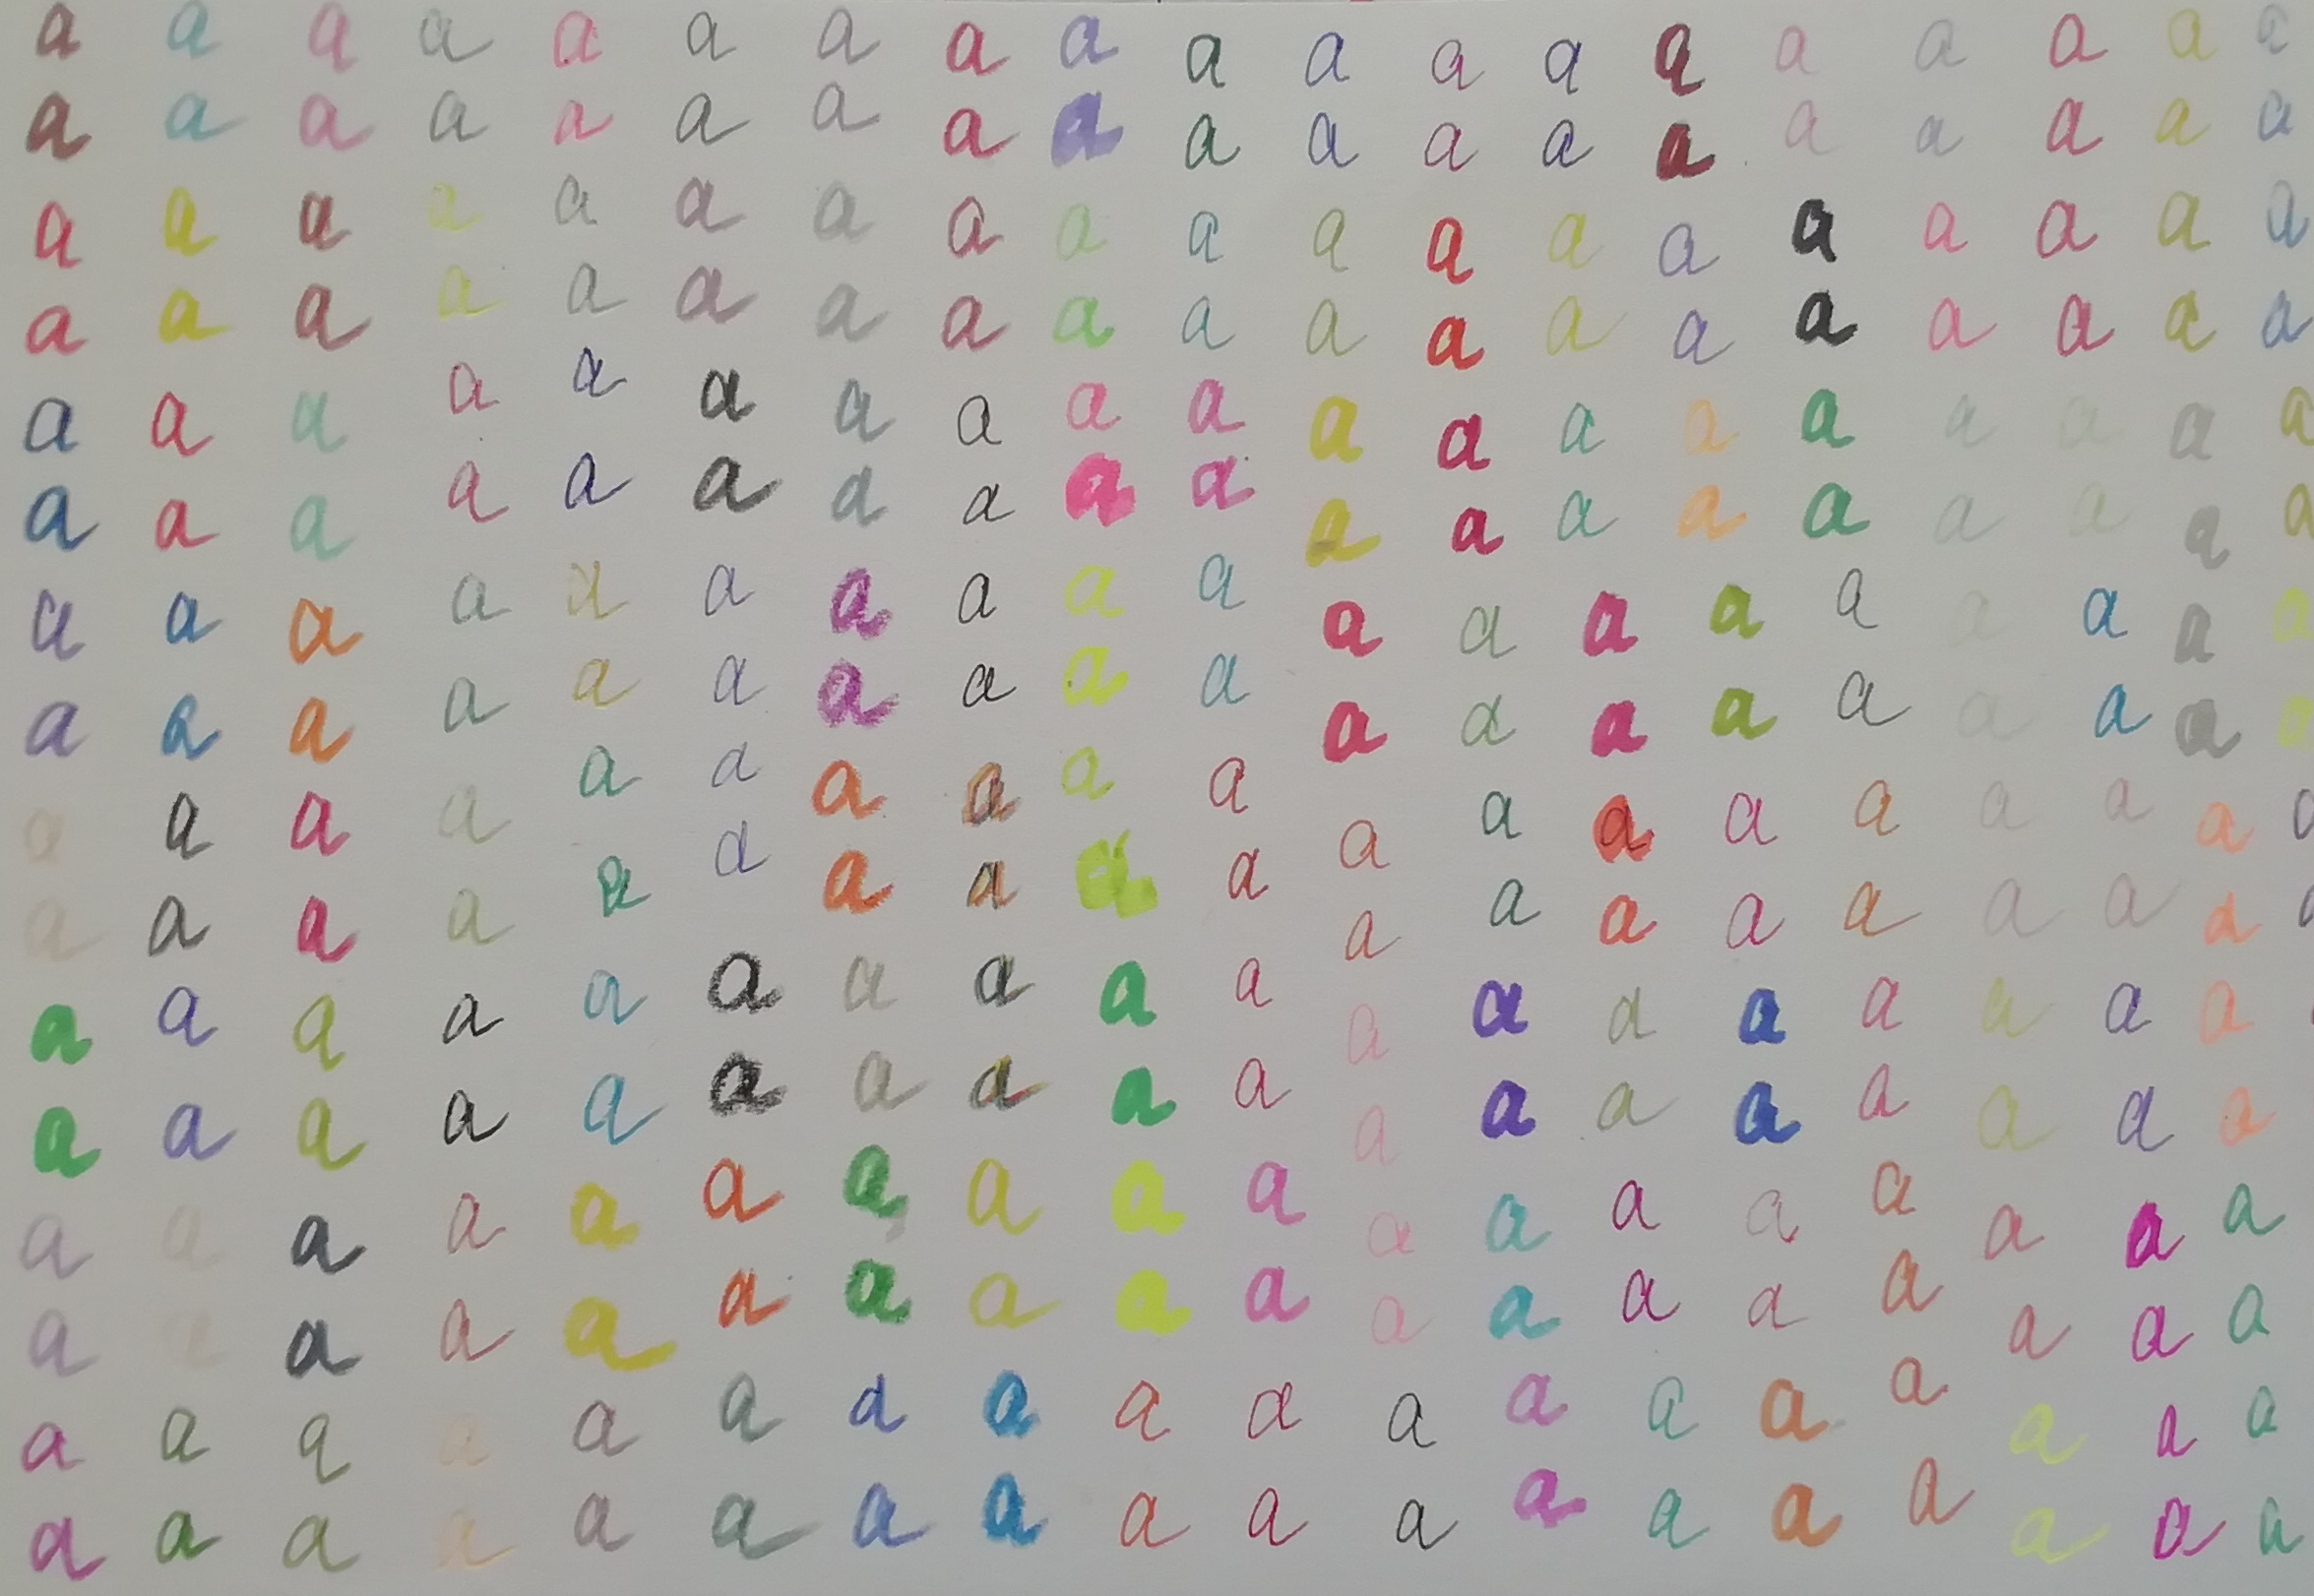 a a a a a a a a a a a a a a a a a a a
a a a a a a a a a a a a a a a a a a a
a a a a a a a a a a a a a a a a a a a
a a a a a a a a a a a a a a a a a a a
a a a a a a a a a a a a a a a a a a a
a a a a a a a a a a a a a a a a a a a
a a a a a a a a a a a a a a a a a a a
a a a a a a a a a a a a a a a a a a a
a a a a a a a a a a a a a a a a a a a
a a a a a a a a a a a a a a a a a a a
a a a a a a a a a a a a a a a a a a
a a a a a a a a a a a a a a a a a a
a a a a a a a a a a a a a a a a a a
a a a a a a a a a a a a a a a a a a
a a a a a a a a a a a a a a a a a a
a a a a a a a a a a a a a a a a a a